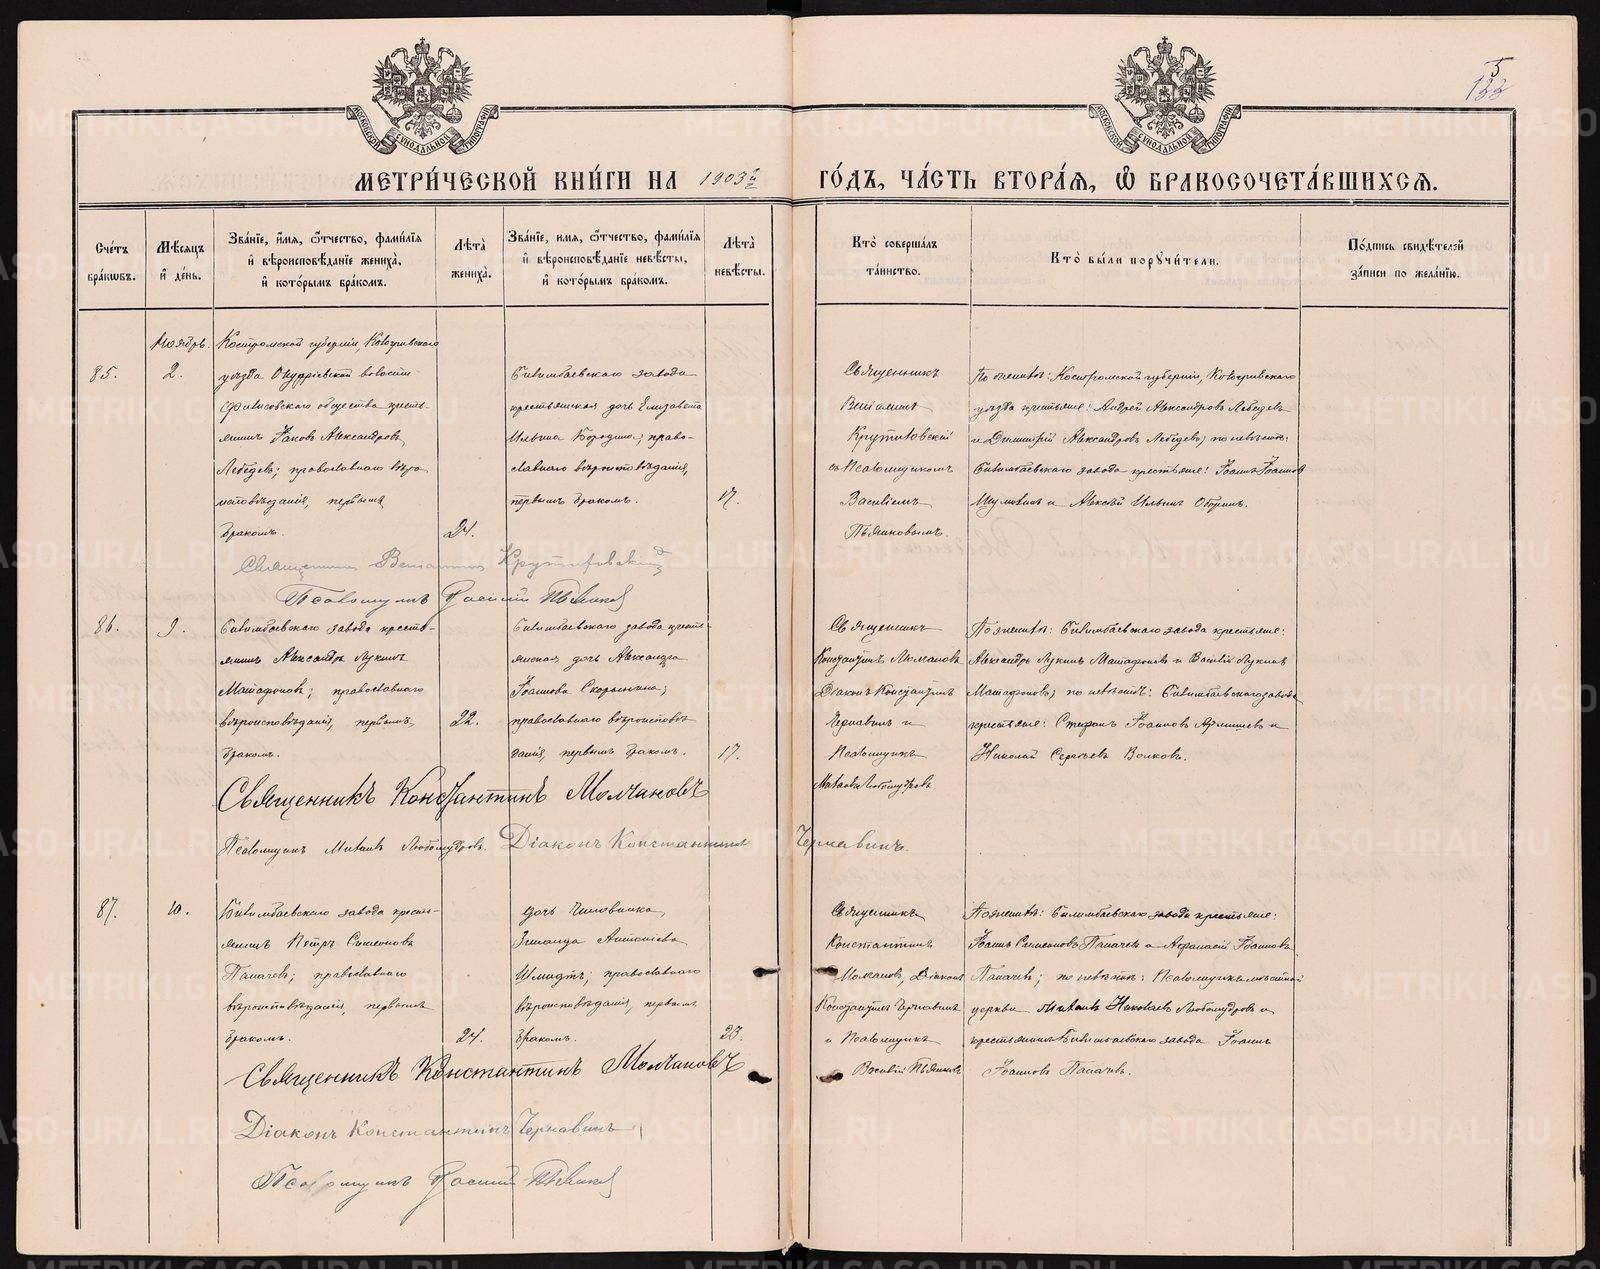 5
133
МОСКОВСКОЙ СѴНОДАЛЬНОЙ ТИПОГРАФІИ
МОСКОВСКОЙ СѴНОДАЛЬНОЙ ТИПОГРАФІИ
МЕТРИ́ЧЕСКОЙ КНИ́ГИ НА 1903й ГО́ДЪ, ЧА́СТЬ ВТОРА́Я, Ѽ БРАКОСОЧЕТА́ВШИХСЯ.
Сче́тъ бра́кѡвъ.
Мѣ́сяцъ и҆ де́нь.
Зва́нїе, и҆́мя, ѻ҆́тчество, фами́лїя и҆ вѣроисповѣ́данїе жениха̀, и҆ кото́рымъ бра́комъ.
Лѣта̀ жениха̀.
Зва́нїе, имя, ѻ҆́тчество, фами́лїя и҆ вѣроисповѣ́данїе невѣ́сты, и҆ кото́рымъ бра́комъ.
Лѣта̀ невѣ́сты.
Кто̀ соверша́лъ та́инство.
Кто̀ бы́ли порꙋчи́тели.
По́дпись свидѣ́телей за́писи по жела́нїю.
85.
Ноябрь.
2.
Костромской губерніи, Кологривскаго
уѣзда волости
общества кресть-
янинъ Іаковъ Александровъ
Лебедевъ; православнаго вѣро
исповѣданія, первымъ
бракомъ.
24.
Билимбаевскаго завода
крестьянская дочь Елизавета
Ильина Бородина; право-
славнаго вѣроисповѣданія,
первымъ бракомъ.
17.
Священникъ
Веніаминъ
Крутиховскій
съ Псаломщикомъ
Василіемъ
Пьянковымъ.
По женихѣ: Костромской губерніи, Кологривскаго
уѣзда крестьяне: Андрей Александровъ Лебедевъ
и Димитрій Александровъ Лебедевъ; по невѣстѣ:
Билимбаевскаго завода крестьяне: Іоаннъ Іоанновъ
и Алексѣй Ильинъ
Священникъ Веніаминъ Крутиховскій
Псаломщикъ Василій Пьянков
86.
9.
Билимбаевскаго завода кресть-
янинъ Александръ Лукинъ
Матафоновъ; православнаго
вѣроисповѣданія, первымъ
бракомъ.
22.
Билимбаевскаго завода кресть-
янская дочь Александра
Іоаннова Скорынина;
православнаго вѣроисповѣ
данія, первымъ бракомъ.
17.
Священникъ
Константинъ Молчановъ
Діаконъ Константинъ
Чернавинъ и
Псаломщикъ
Михаилъ Любомудровъ
По женихѣ: Билимбаевскаго завода крестьяне:
Александръ Лукинъ Матафоновъ и Василій Лукинъ
Матафоновъ; по невѣстѣ: Билимбаевскаго завода
крестьяне: Стефанъ Іоанновъ и
Николай Сергѣевъ Волковъ.
Священникъ Константинъ Молчановъ
Псаломщикъ Михаилъ Любомудровъ. Діаконъ Константинъ Чернавинъ.
87.
10.
Билимбаевскаго завода кресть-
янинъ Петръ Симеоновъ
Папачевъ; православнаго
вѣроисповѣданія, первымъ
бракомъ.
24.
дочь Чиновника
Зинаида Антоніева
Шмидтъ; православнаго
вѣроисповѣданія, первымъ
бракомъ.
23.
Священникъ
Константинъ
Молчановъ, Діаконъ
Константинъ Чернавинъ
и Псаломщикъ
Василій Пьянковъ
По женихѣ: Билимбаевскаго завода крестьяне:
Іоаннъ Симеоновъ Папачевъ и Афанасій Іоанновъ
Папачевъ; по невѣстѣ: Псаломщикъ мѣстной
церкви Михаилъ Николаевъ Любомудровъ и
крестьянинъ Билимбаевскаго завода Іоаннъ
Іоанновъ Папачевъ.
Священникъ Константинъ Молчановъ
Діаконъ Константинъ Чернавинъ
Псаломщикъ Василій Пьянков
METRIKI.GASO-URAL.RU